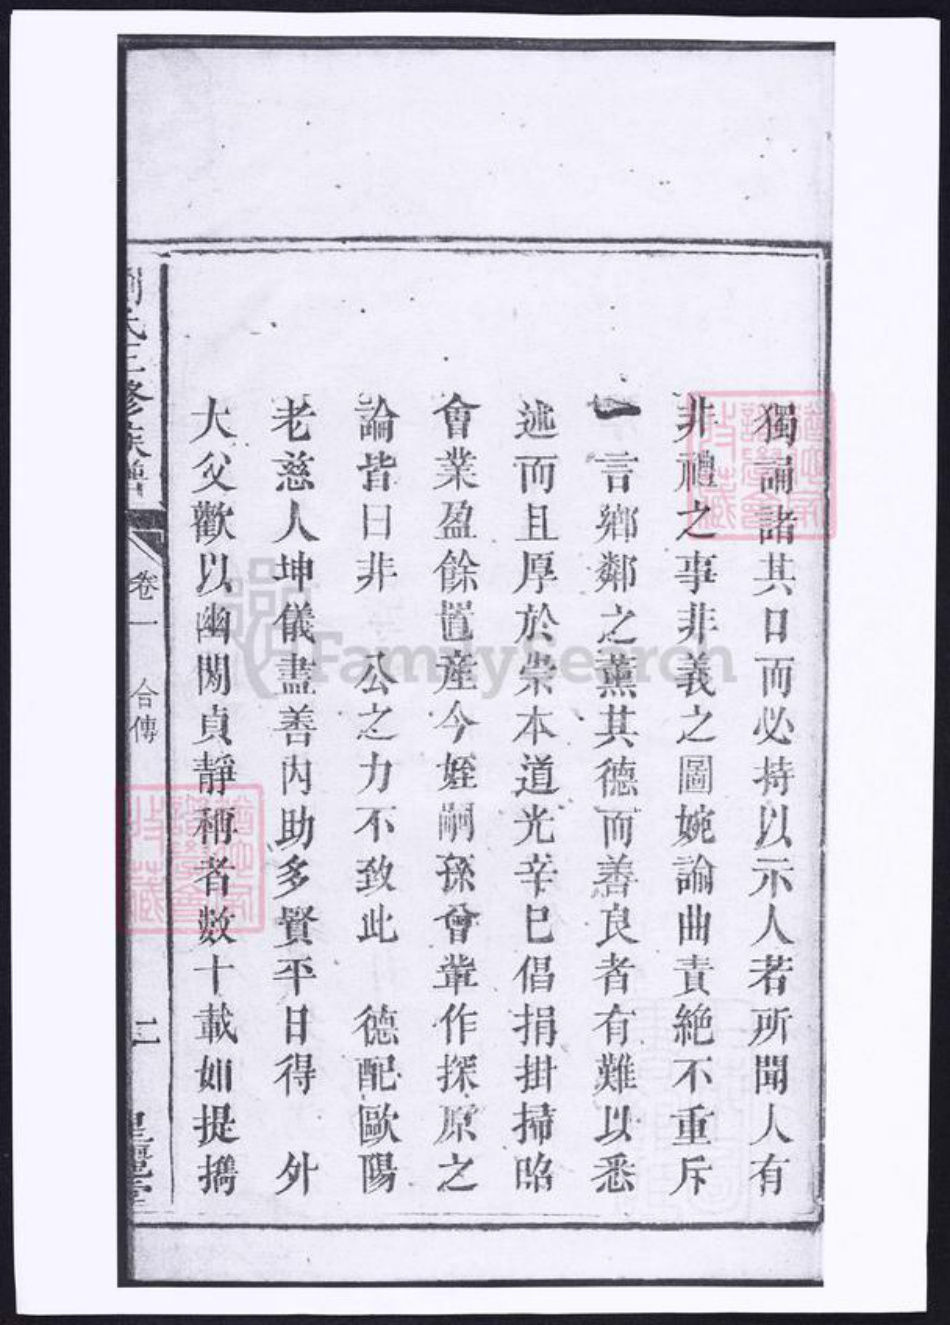 獨誦諸其口而必持以示人若所聞人有
非禮之事非義之圖婉諭曲責絕不重斥
一言鄉鄰之薰其德而善良者有難以悉
述而且厚於崇本道光辛巳倡捐掛掃昭
會業盈餘置產今姪嗣孫會輩作探原之
論皆曰非　公之力不致此　德配歐陽
老慈人坤儀盡善內助多賢平日得　外
大父歡以幽閒貞靜稱者數十載如提攜
劉氏三修族譜
卷一
合傳
二
FamilySearch